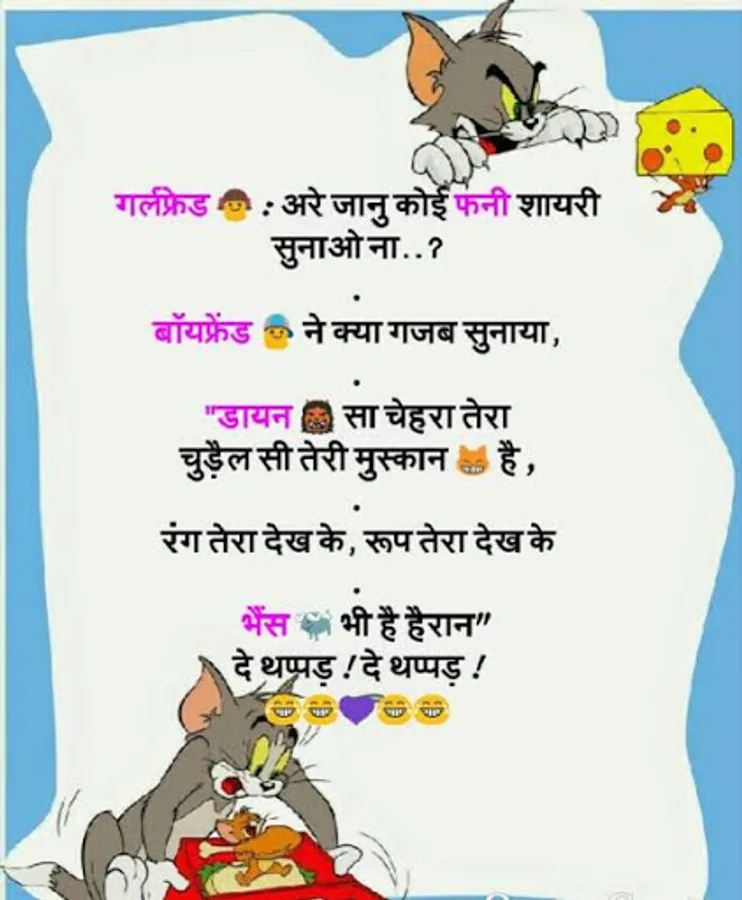 गर्लफ्रेड 👧 : अरे जानु कोई फनी शायरी
सुनाओ ना..?
.
बॉयफ्रेंड 🧢 ने क्या गजब सुनाया,
.
"डायन 👹 सा चेहरा तेरा
चुड़ैल सी तेरी मुस्कान 😸 है,
.
रंग तेरा देख के, रूप तेरा देख के
.
भैंस 🐃 भी है हैरान”
दे थप्पड़ ! दे थप्पड़ !
😂😂💜😂😂